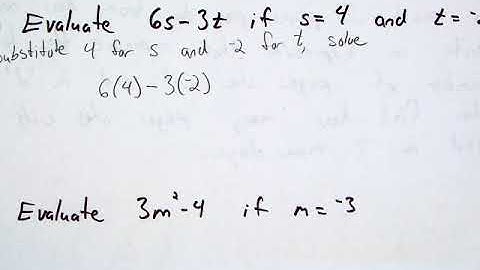 Evaluate 6s-3t if s=4 and t=-2
substitute 4 for s and -2 for t, solve
6(4)-3(-2)
Evaluate 3m²-4 if m=-3